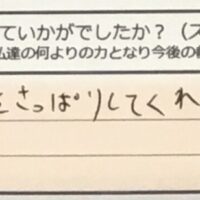 ていかがでしたか？（ス
達の何よりの力となり今後の
さっぱりしてくれ